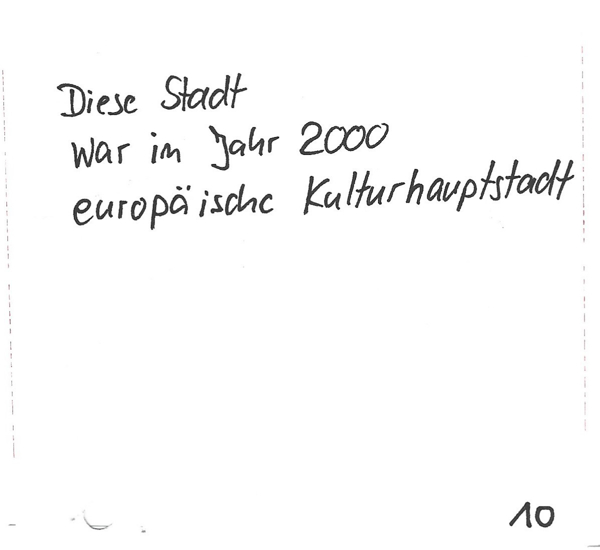 Diese Stadt
war im Jahr 2000
europäische Kulturhauptstadt
10